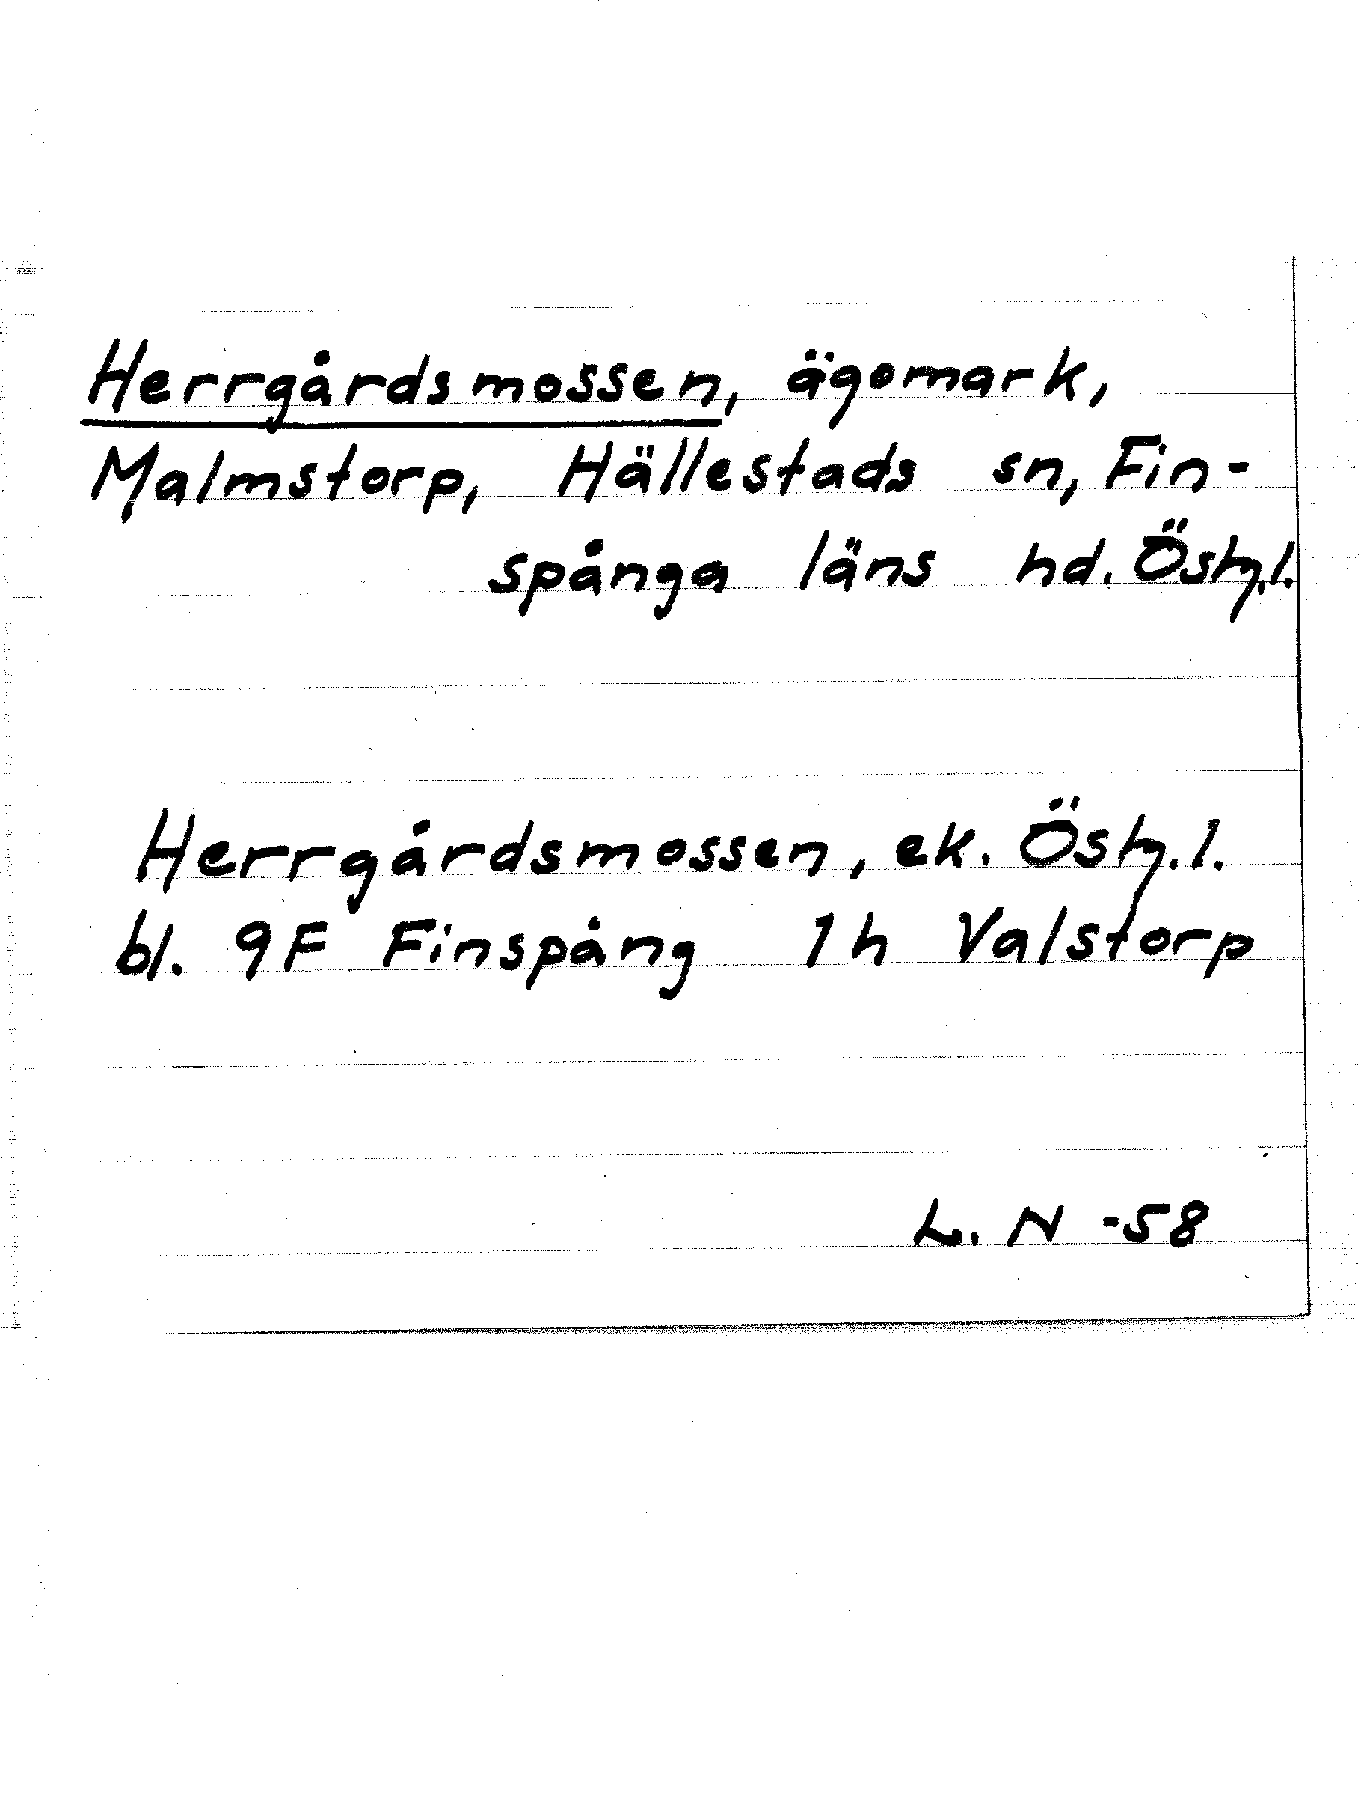 Herrgårdsmossen, ägomark,
Malmstorp, Hällestads sn, Fin-
spånga läns hd. Östg.l.
Herrgårdsmossen, ek. Östg.l.
bl. 9F Finspång 1h Valstorp
L. N -58